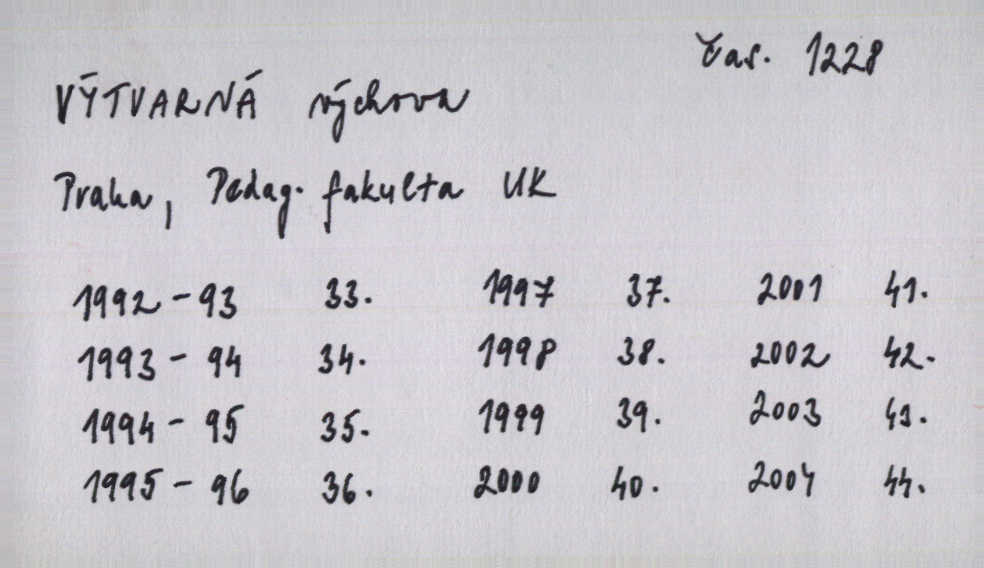 čas. 1228
VÝTVARNÁ výchova
Praha, Pedag. fakulta UK
1992 - 93 33. 1997 37. 2001 41.
1993 - 94 34. 1998 38. 2002 42.
1994 - 95 35. 1999 39. 2003 43.
1995 - 96 36. 2000 40. 2004 44.